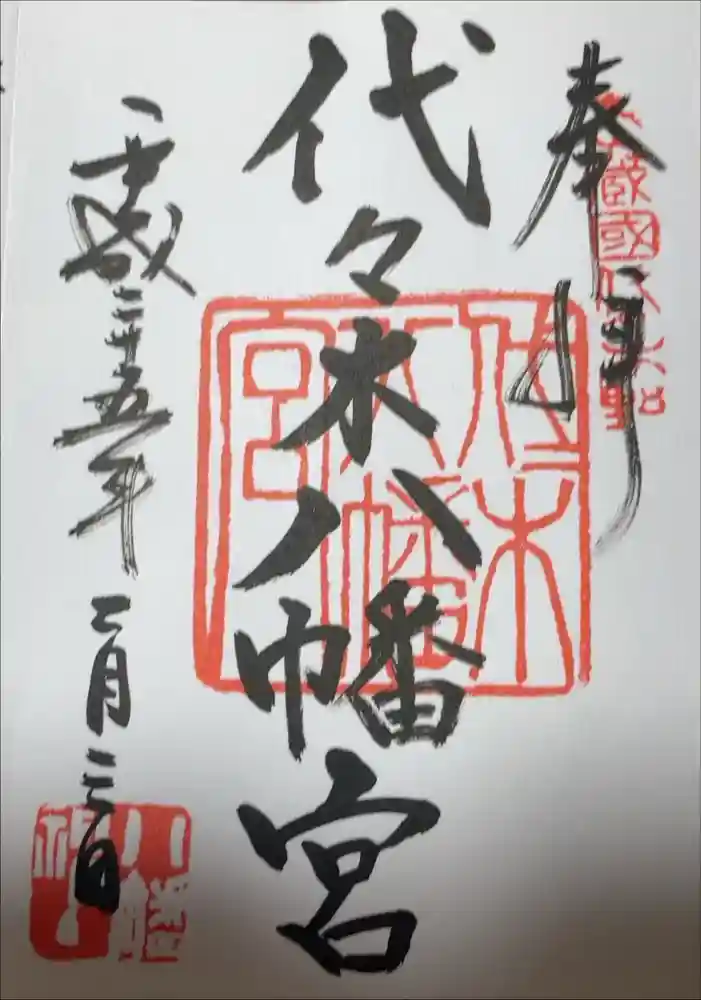 奉拝
武蔵國代々木鎮
代々木八幡宮
代々木八幡宮
平成二十五年二月三日